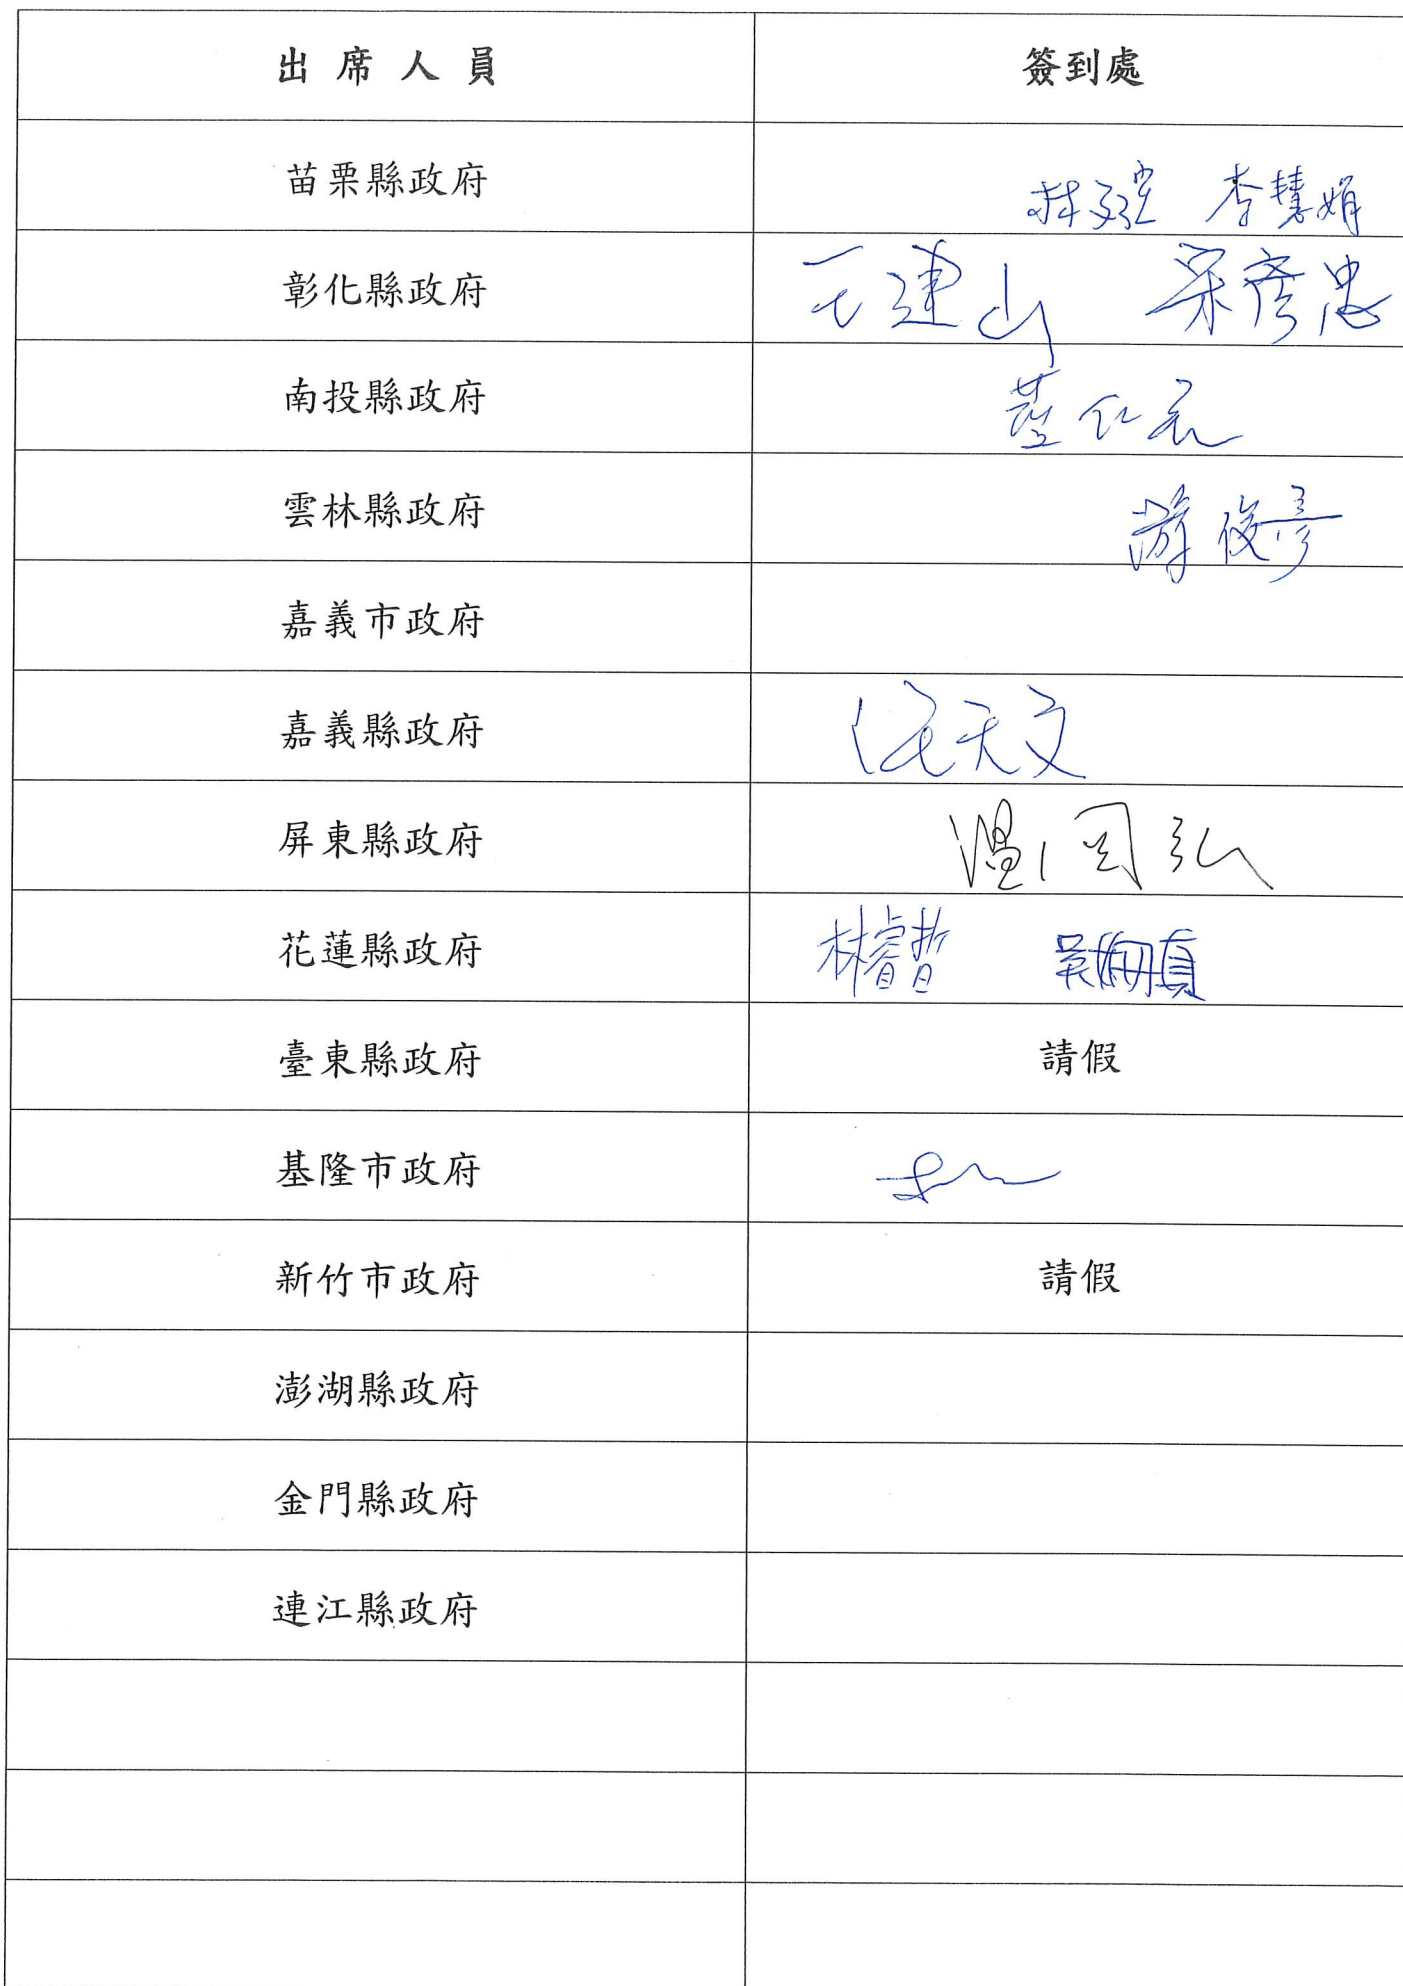 出席人員 簽到處
苗栗縣政府 李慧娟
彰化縣政府 王建山 宋彥忠
南投縣政府
雲林縣政府 游俊彥
嘉義市政府
嘉義縣政府 伍天文
屏東縣政府 溫國弘
花蓮縣政府 林睿哲
臺東縣政府 請假
基隆市政府
新竹市政府 請假
澎湖縣政府
金門縣政府
連江縣政府